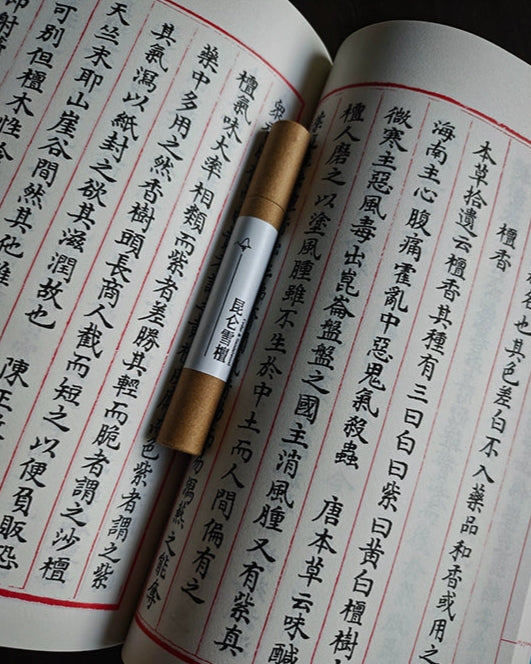 也其色差白不入藥品和香或用之
檀香
本草拾遺云檀香其種有三曰白曰紫曰黃白檀樹
海南主心腹痛霍亂中惡鬼氣殺蟲 唐本草云味鹹
微寒主惡風毒出崑崙盤盤之國主消風腫又有紫真
檀人磨之以塗風腫雖不生於中土而人間偏有之
之能奪
色紫者謂之紫
檀氣味大率相類而紫者差勝其輕而脆者謂之沙檀
藥中多用之然香樹頭長商人截而短之以便負販恐
其氣瀉以紙封之欲其滋潤故也 陳正
天竺末耶山崖谷間然其他雜
可別但檀木性冷
即射
昆仑雪檀